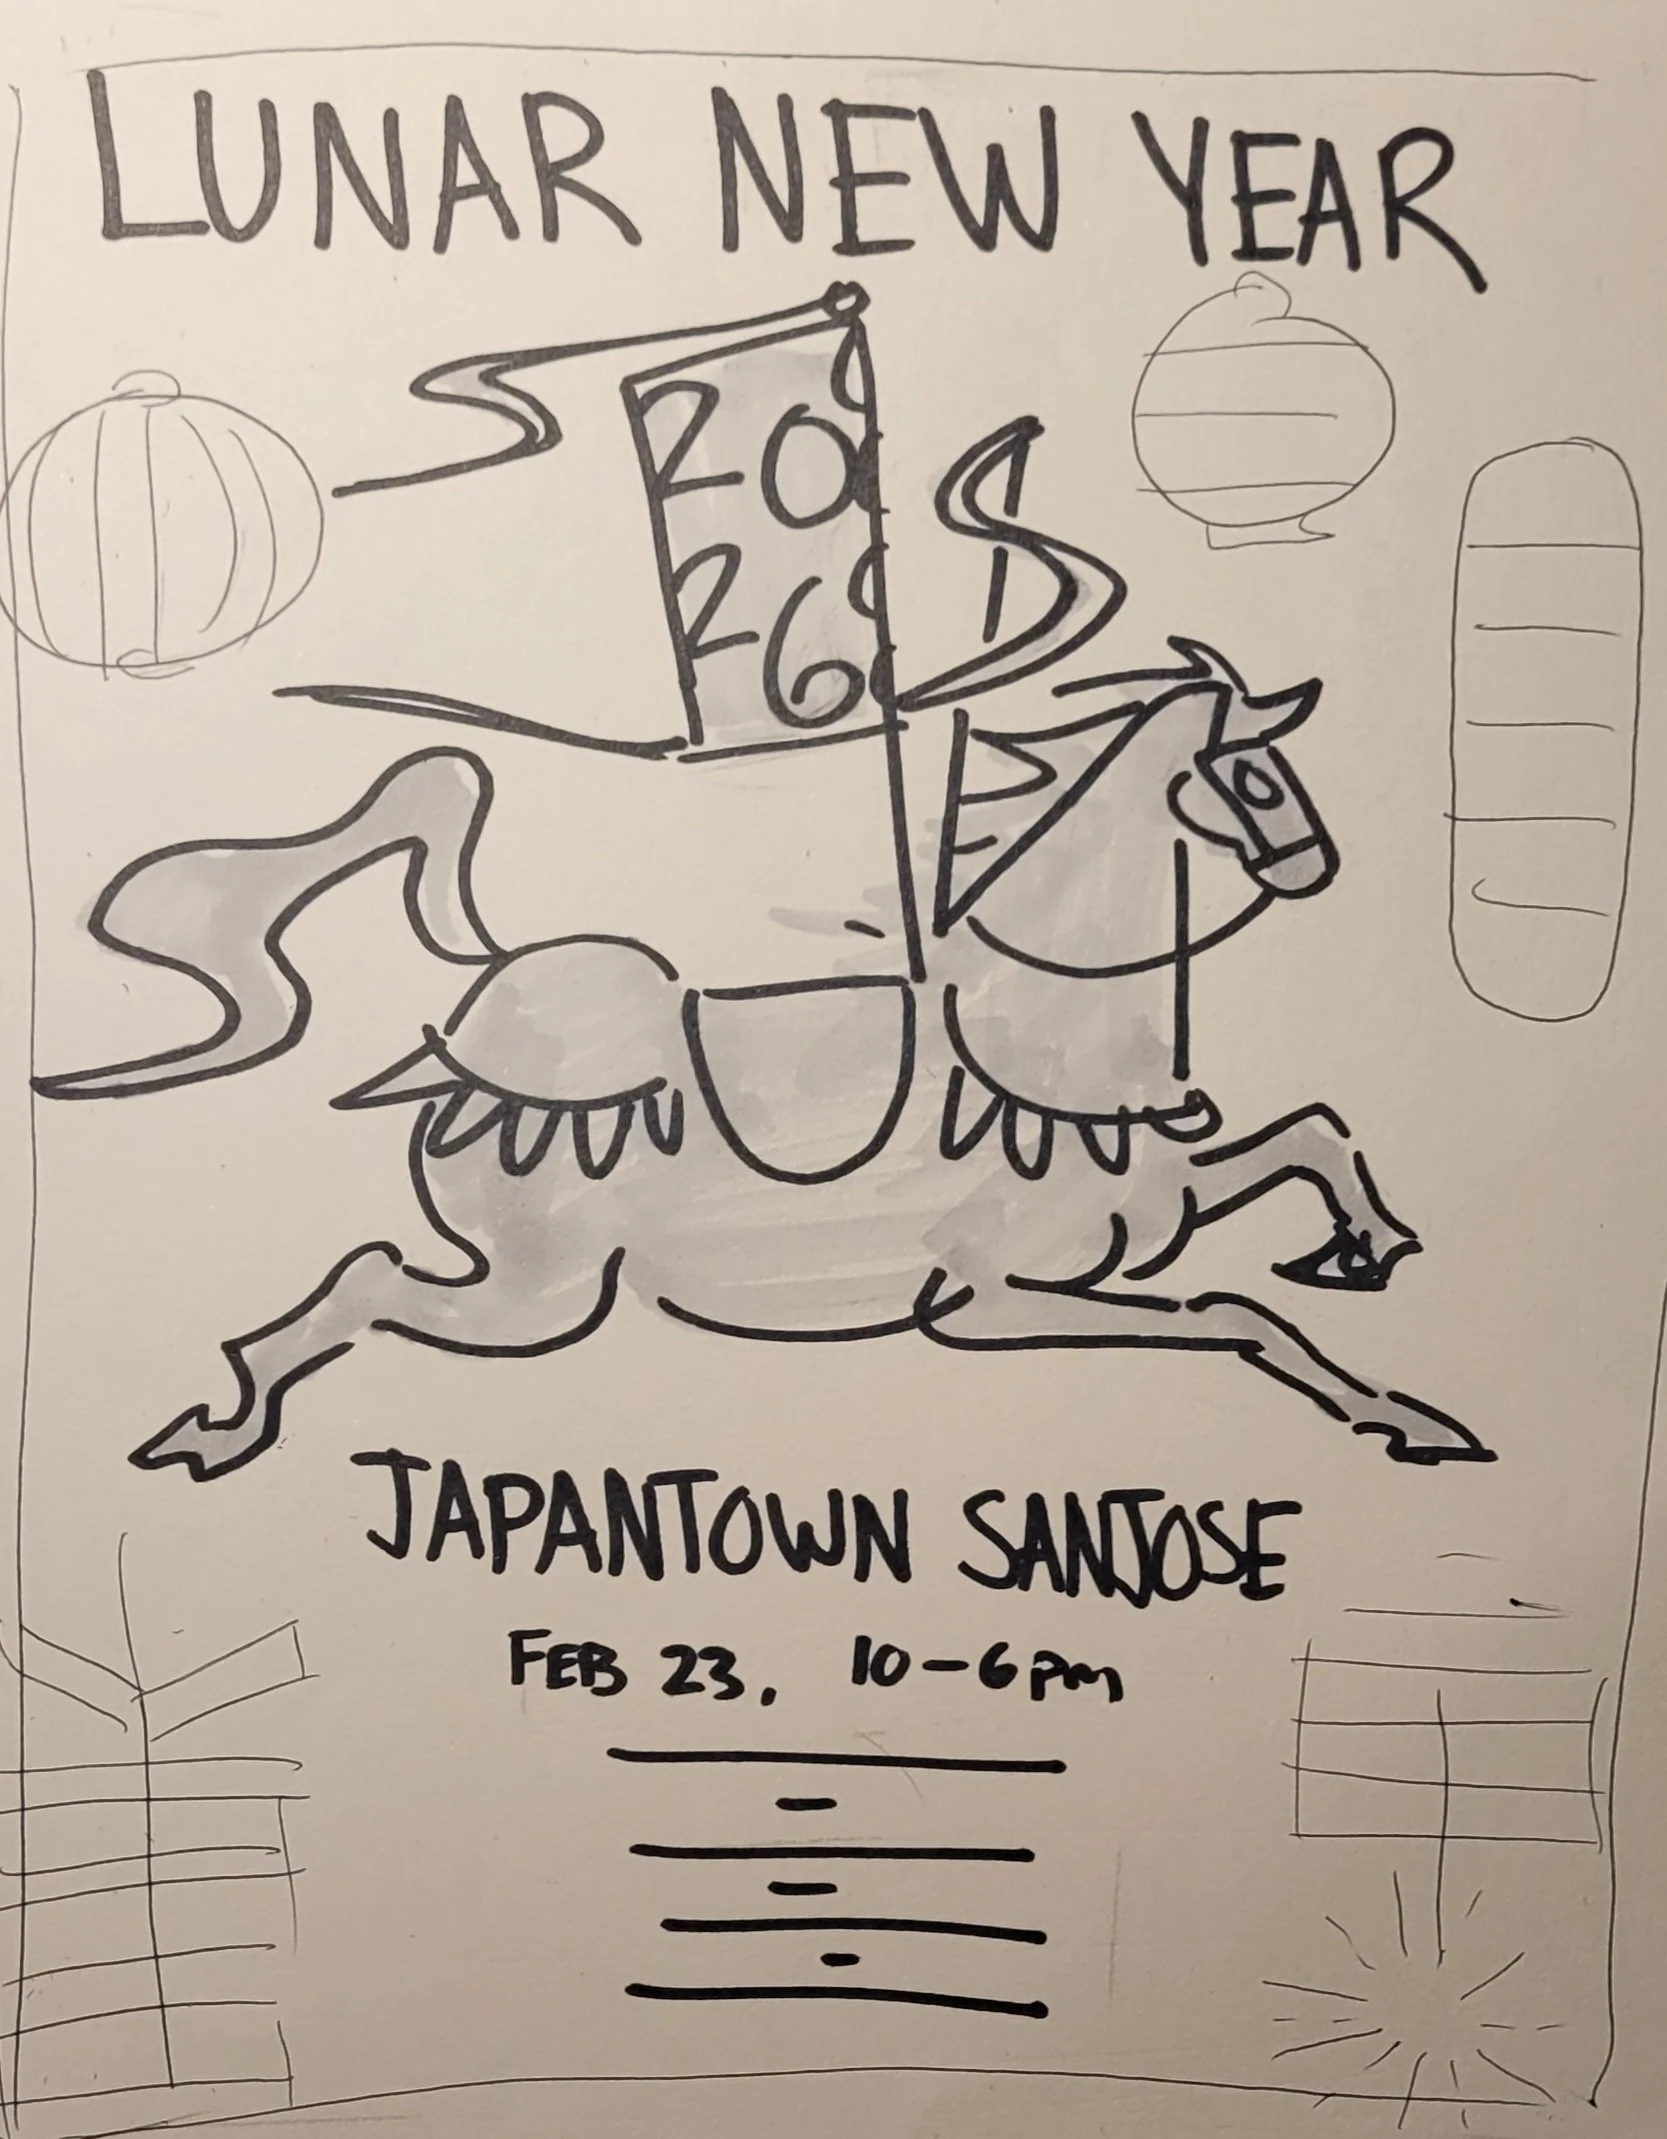 LUNAR NEW YEAR
20
26
JAPANTOWN SAN JOSE
FEB 23. 10-6pm